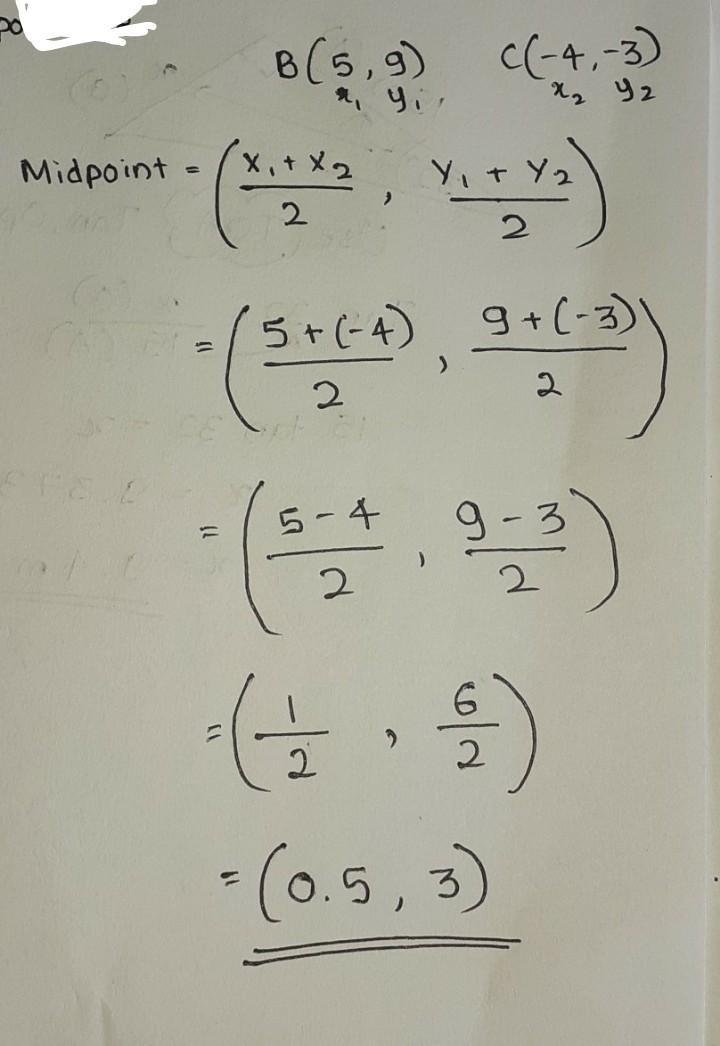 B(5,9) C(-4,-3)
x₁ y₁, x₂ y₂
Midpoint = (x₁ + x₂ / 2 , y₁ + y₂ / 2)
= (5+(-4) / 2 , 9+(-3) / 2)
= (5-4 / 2 , 9-3 / 2)
= (1/2 , 6/2)
= (0.5, 3)